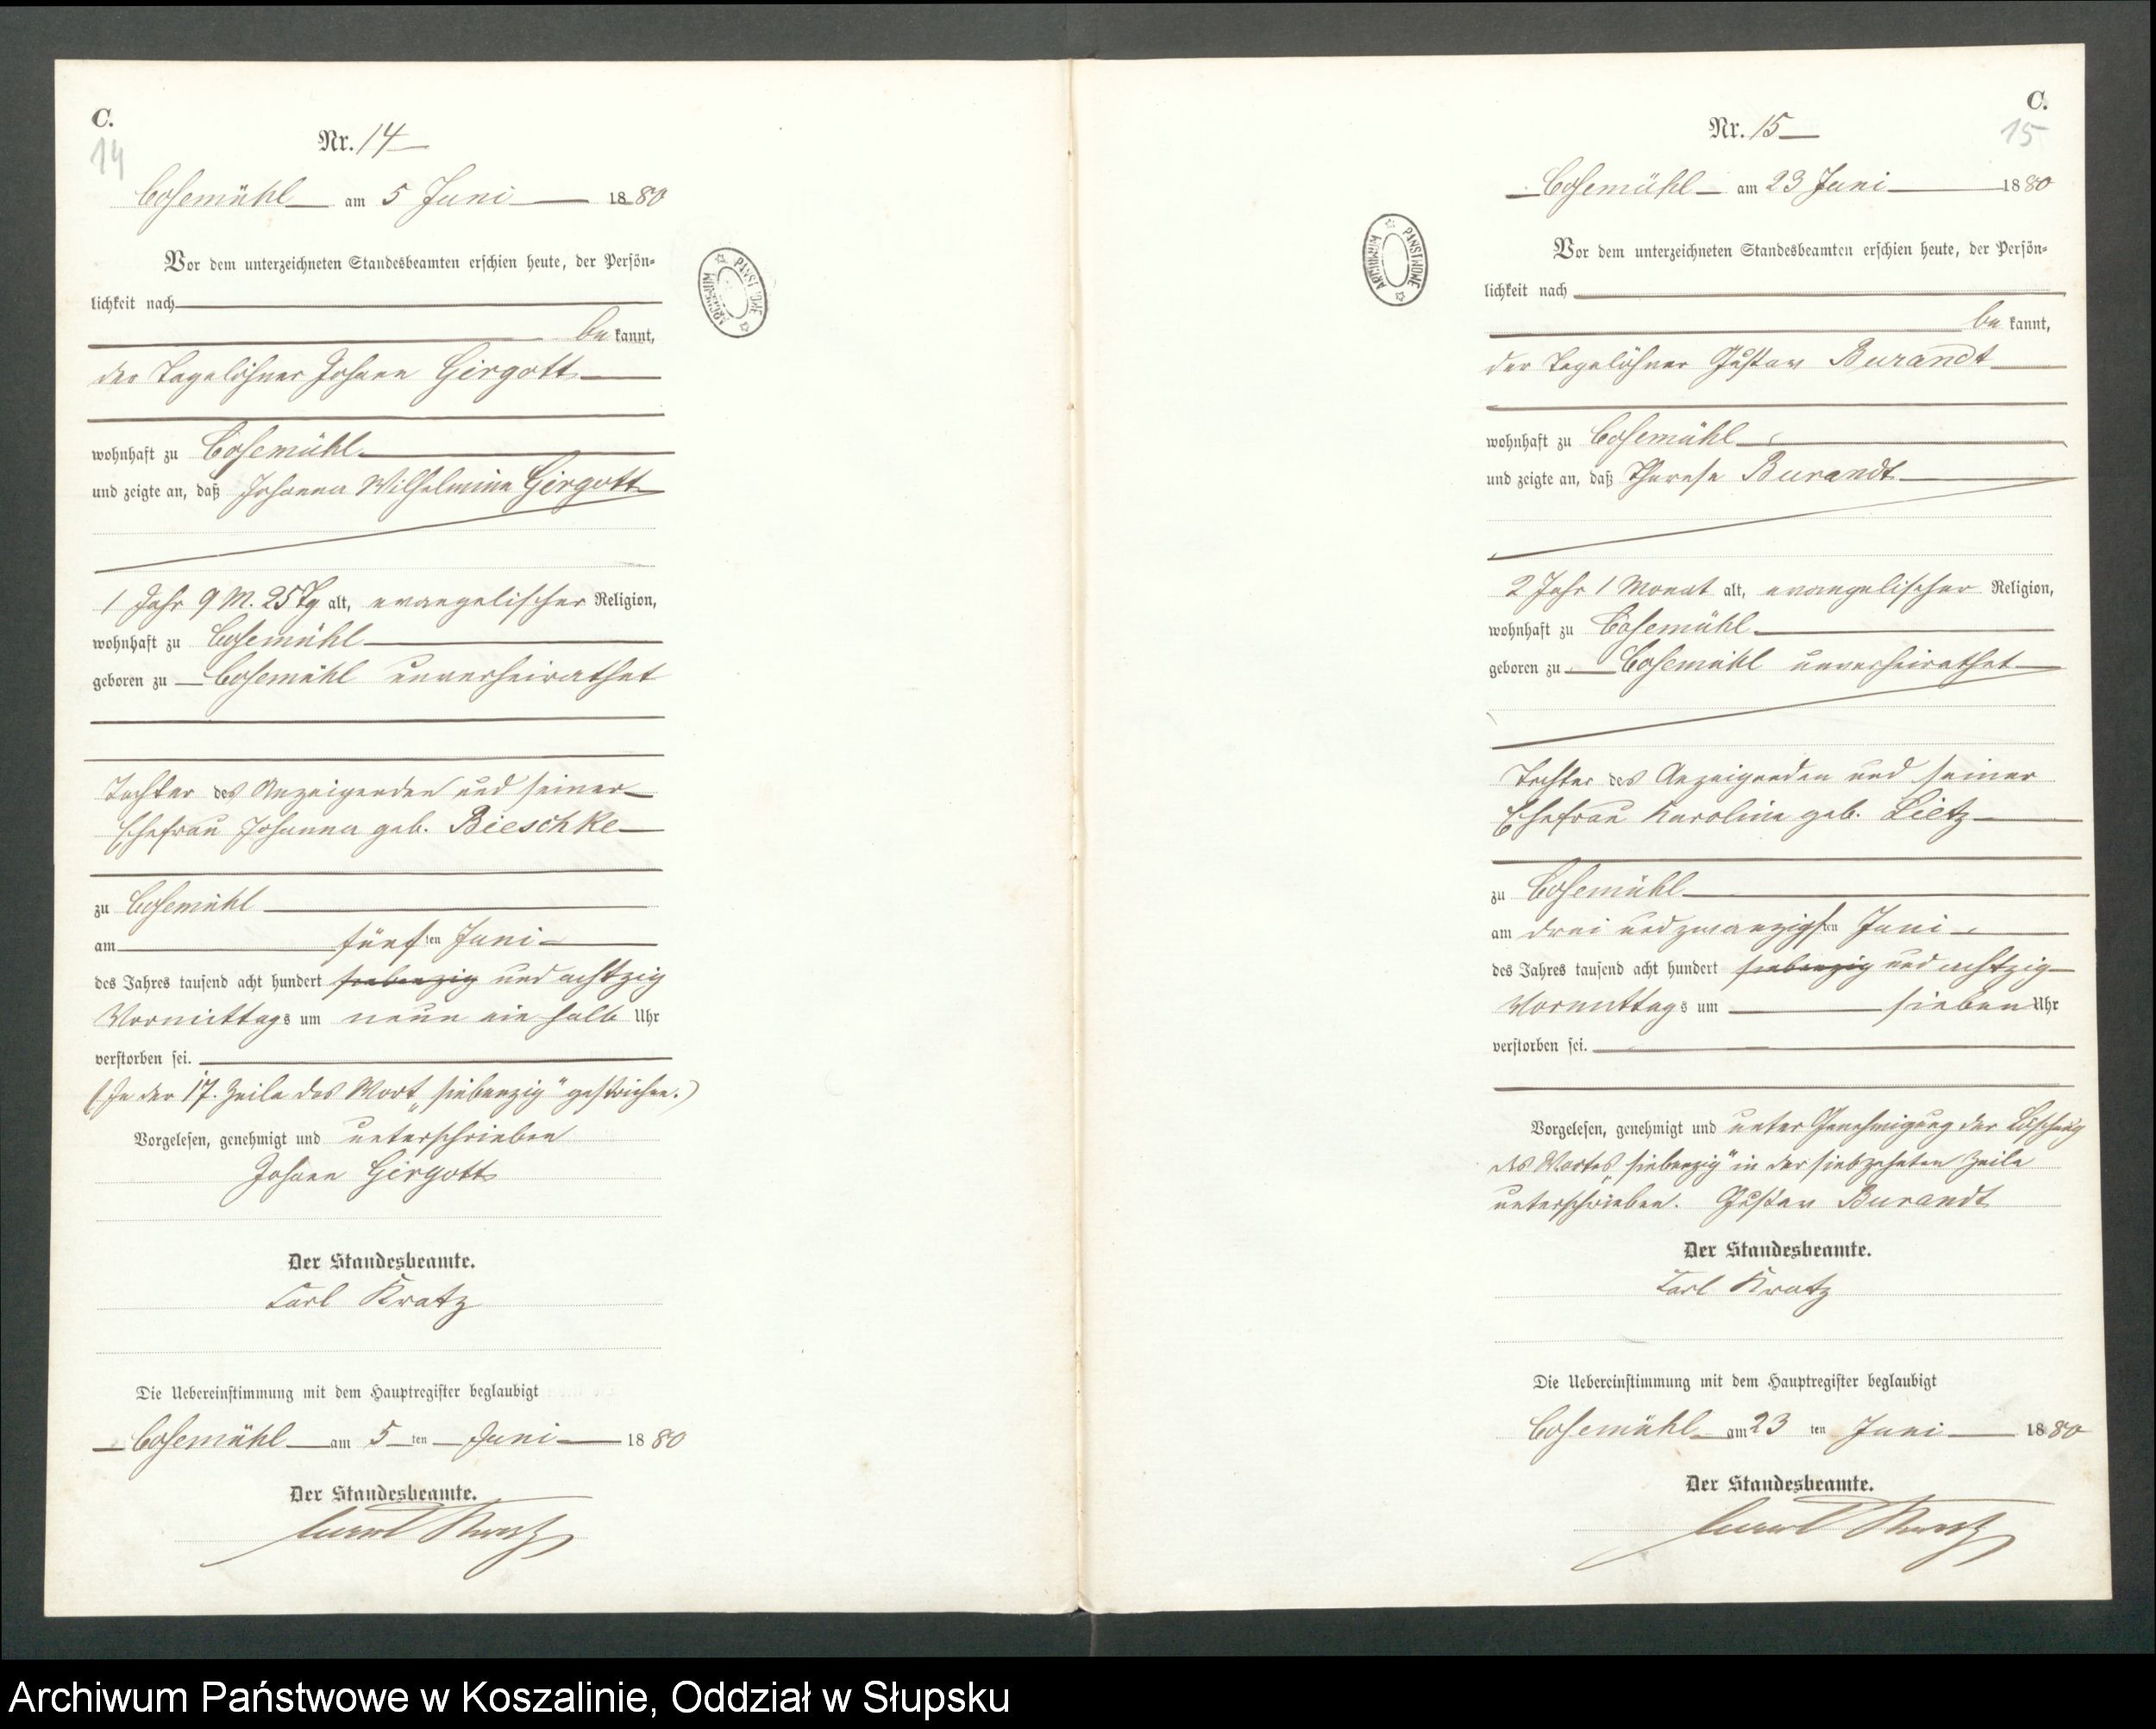 C.
14
Nr. 14
Cosemühl am 5 Juni 1880
Vor dem unterzeichneten Standesbeamten erschien heute, der Persön-
lichkeit nach
bekannt,
der Tagelöhner Johann Girgott
wohnhaft zu Cosemühl
und zeigte an, daß Johanna Wilhelmine Girgott
1 Jahr 9 M. 25 Tg alt, evangelischer Religion,
wohnhaft zu Cosemühl
geboren zu Cosemühl unverheirathet
Tochter des Anzeigenden und seiner
Ehefrau Johanna geb. Bieschke
zu Cosemühl
am fünften Juni
des Jahres tausend acht hundert siebenzig und achtzig
Vormittags um neun ein halb Uhr
verstorben sei.
(In der 17. Zeile das Wort „siebenzig" gestrichen.)
Vorgelesen, genehmigt und unterschrieben
Johann Girgott
Der Standesbeamte.
Carl Kratz
Die Uebereinstimmung mit dem Hauptregister beglaubigt
Cosemühl am 5ten Juni 1880
Der Standesbeamte.
Carl Kratz
ARCHIWUM PAŃSTWOWE
C.
15
Nr. 15
Cosemühl am 23 Juni 1880
Vor dem unterzeichneten Standesbeamten erschien heute, der Persön-
lichkeit nach
bekannt,
der Tagelöhner Gustav Burandt
wohnhaft zu Cosemühl
und zeigte an, daß Therese Burandt
2 Jahr 1 Monat alt, evangelischer Religion,
wohnhaft zu Cosemühl
geboren zu Cosemühl unverheirathet
Tochter des Anzeigenden und seiner
Ehefrau Karoline geb. Lietz
zu Cosemühl
am drei und zwanzigsten Juni
des Jahres tausend acht hundert siebenzig und achtzig
Vormittags um sieben Uhr
verstorben sei.
Vorgelesen, genehmigt und unter Genehmigung der Löschung
des Wortes „siebenzig" in der siebzehnten Zeile
unterschrieben. Gustav Burandt
Der Standesbeamte.
Carl Kratz
Die Uebereinstimmung mit dem Hauptregister beglaubigt
Cosemühl am 23 ten Juni 1880
Der Standesbeamte.
Carl Kratz
ARCHIWUM PAŃSTWOWE
Archiwum Państwowe w Koszalinie, Oddział w Słupsku